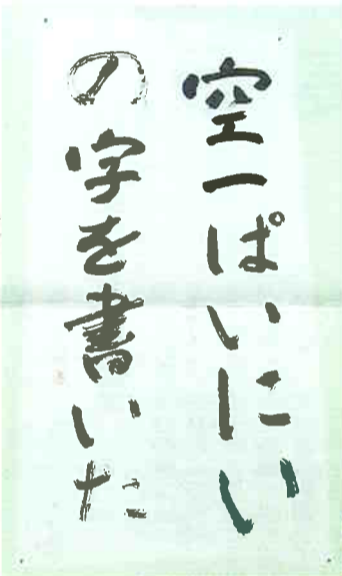 空一ぱいにい
の字を書いた